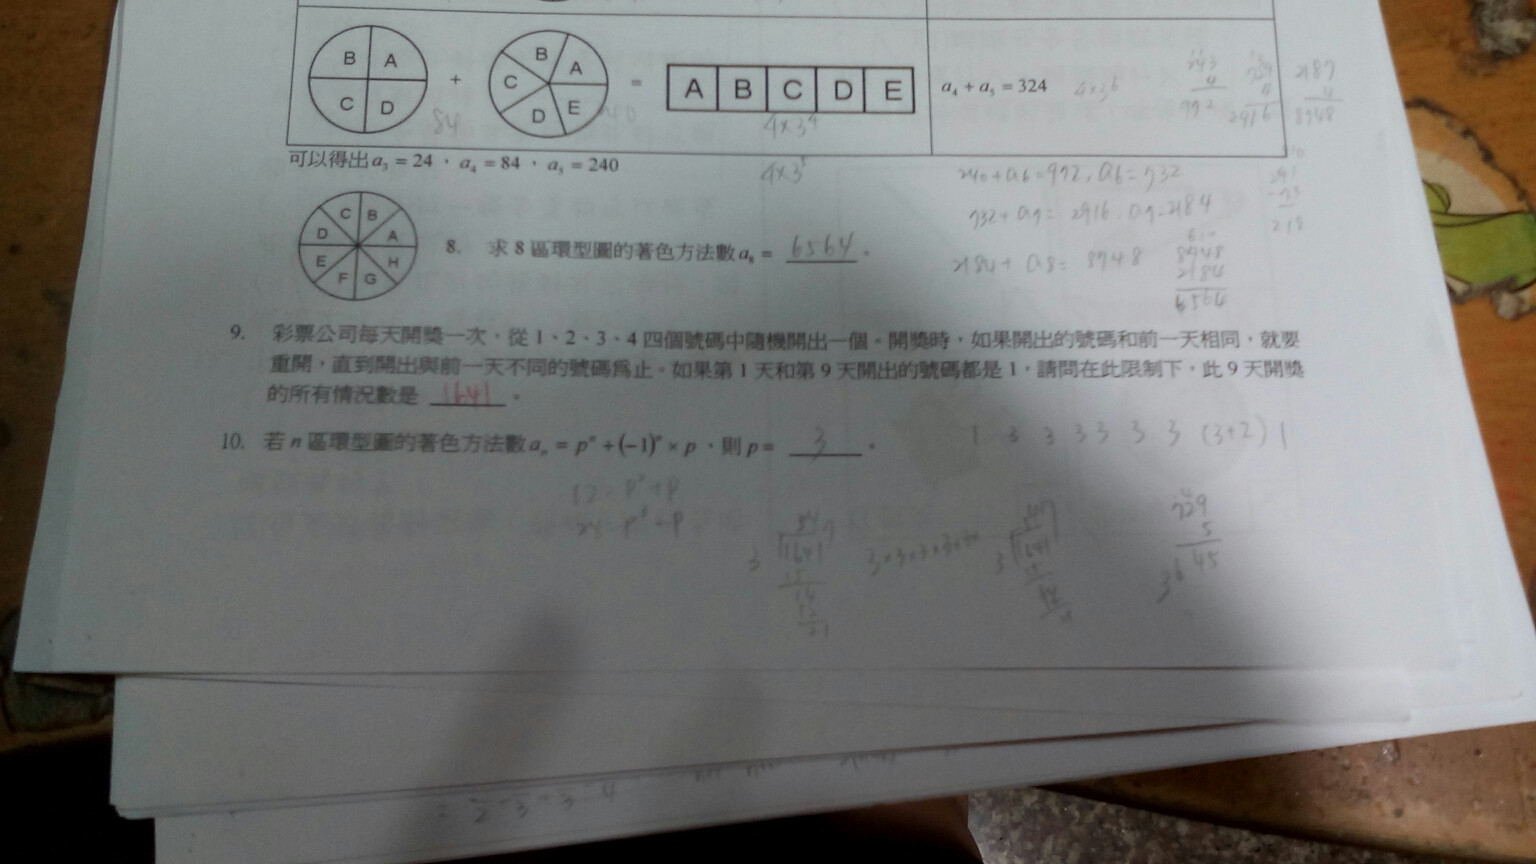 B A C D + B A C D E = A B C D E a₄ + a₅ = 324 4×3⁶
84 240 4×3⁴
243 4 972
729 4 2916
2187 4 8748
可以得出 a₃ = 24，a₄ = 84，a₅ = 240 4×3⁵
240+a6=972, a6=732
732+a7= 2916, a7=2184
C B D A E H F G 8. 求 8 區環型圖的著色方法數 a₈ = 6564 。
2184+ a8= 8748
8748
2184
6564
9. 彩票公司每天開獎一次，從 1、2、3、4 四個號碼中隨機開出一個。開獎時，如果開出的號碼和前一天相同，就要
重開，直到開出與前一天不同的號碼為止。如果第 1 天和第 9 天開出的號碼都是 1，請問在此限制下，此 9 天開獎
的所有情況數是 1641 。
10. 若 n 區環型圖的著色方法數 aₙ = pⁿ + (−1)ⁿ × p，則 p = 3 。
1 3 3 3 3 3 3 (3+2) 1
12= p²+p
24= p³-p
3 1641
3 1641
729
5
3⁶ 45